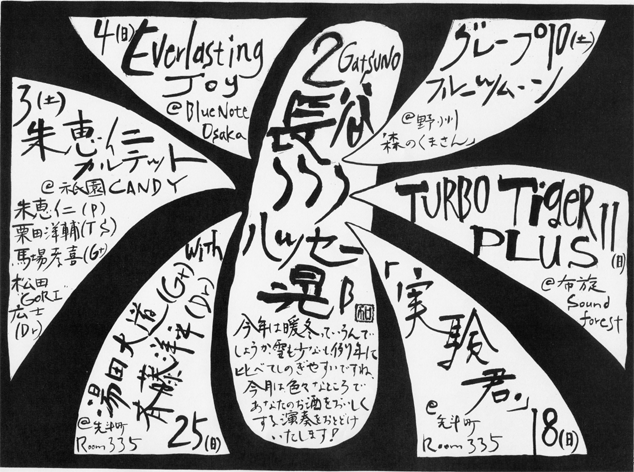 2 GATSUNO
長谷川
ハッセー
晃
B
今年は暖冬っていうんで
しょうか、雪も少ないし例年に
比べてしのぎやすいですね。
今月は色々なところで
あなたのお酒をおいしく
する演奏をおとどけ
いたします!
3(土)
朱恵仁
カルテット
@祇園CANDY
朱恵仁(P)
栗田洋輔(TS)
馬場孝喜(Gt)
松田
"GORI"
広士
(Dr)
4(日)
Everlasting
Joy
@Blue Note
Osaka
グレープ
フルーツムーン
10(土)
@野小川
「森のくまさん」
TURBO TigER
PLUS
11(日)
@布施
Sound
forest
「実験君」
@先斗町
Room335
18(日)
湯田大道(Gt)
with
斉藤洋平(Dr)
@先斗町
Room 335
25(日)